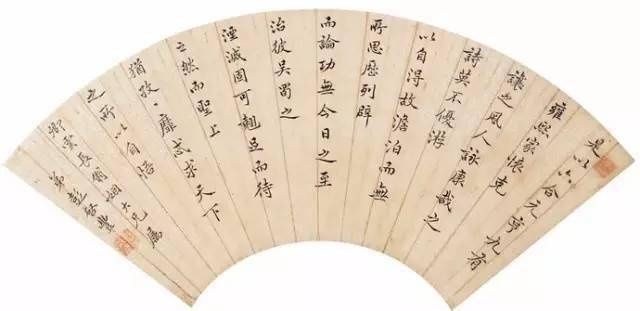 是以六合元亨九有
雍熙家懷克
讓之風人詠康哉之
詩莫不優游
以自得故澹泊而無
所思歷列辟
而論功無今日之至
治彼吳蜀之
湮滅固可翹足而待
之然而聖上
猶孜〻靡忒求天下
之所以自悟
長翁姻大兄屬
弟彭啓豐